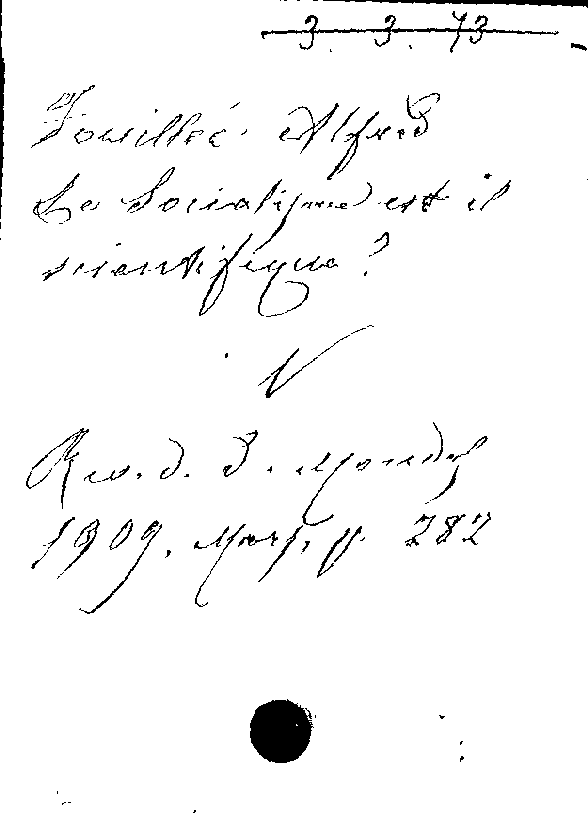 3. 3. 73
Fouillée. Alfred
Le Socialisme est il
scientifique?
N
Rev. d. d. Mondes
1909. Mars. p. 282